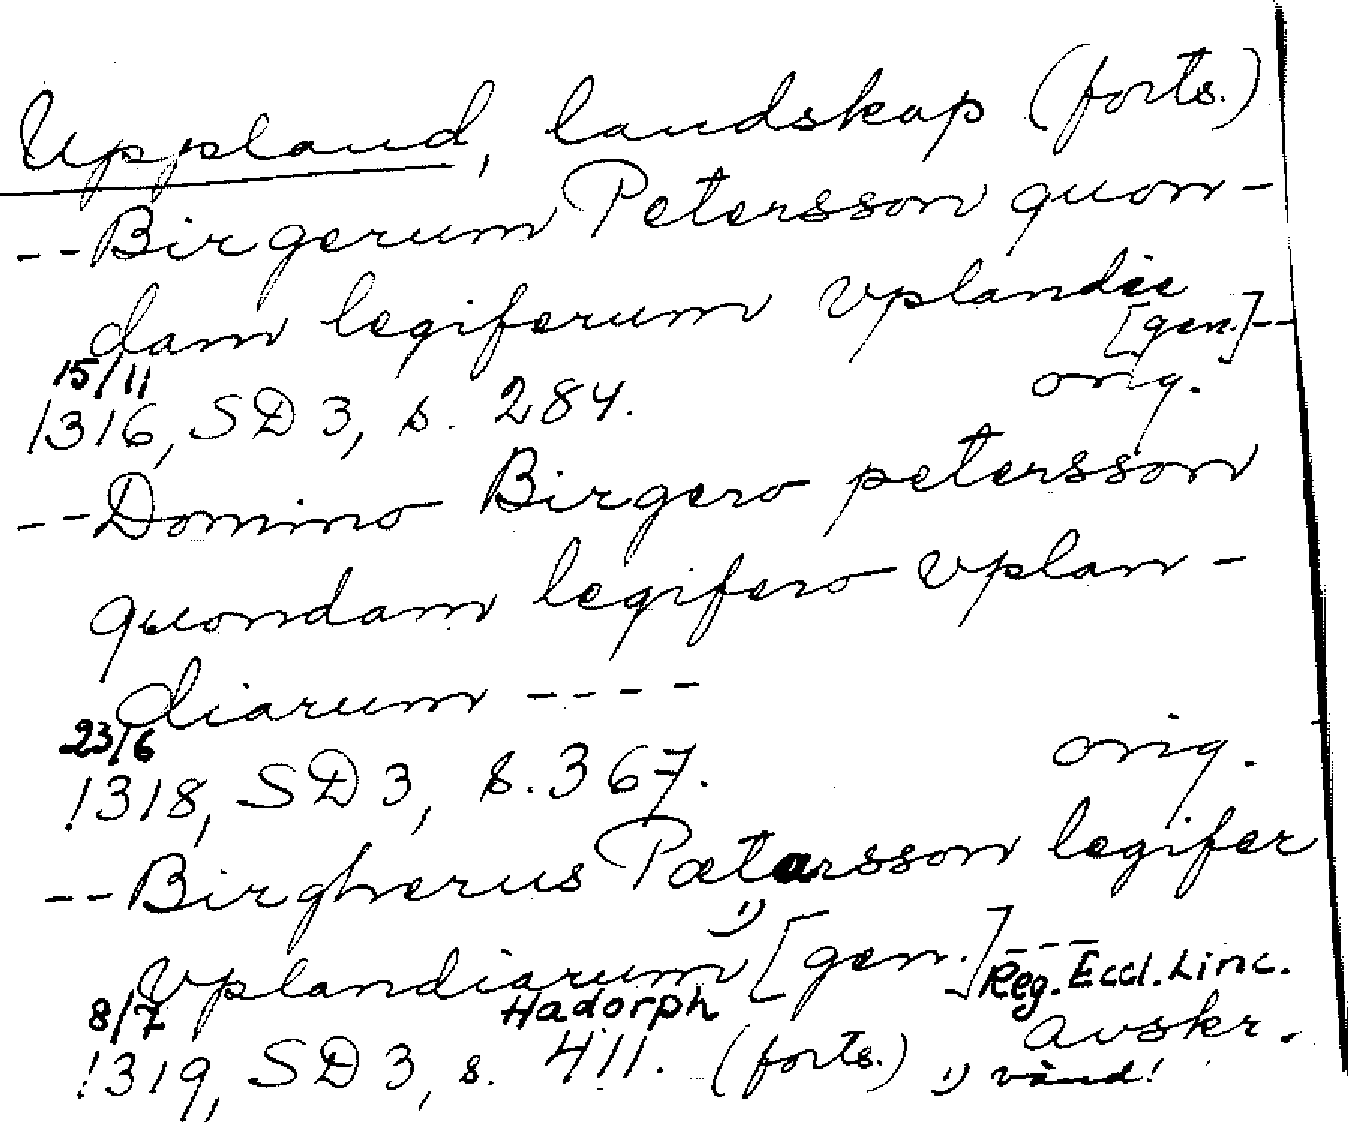 Uppland, landskap (forts.)
--Birgerum Petersson quon-
dam legiferum vplandie
[gen.]--
15/11
1316, SD 3, s. 284. orig.
--Domino Birgero petersson
quondam legifero vplan-
diarum ----
23/6
1318, SD 3, s. 367. orig.
--Birgherus Pætarsson legifer
vplandiarum 1) [gen.] ---
8/7 Hadorph Reg. Eccl. Linc.
1319, SD 3, s. 411. (forts.) avskr.
1) vänd!